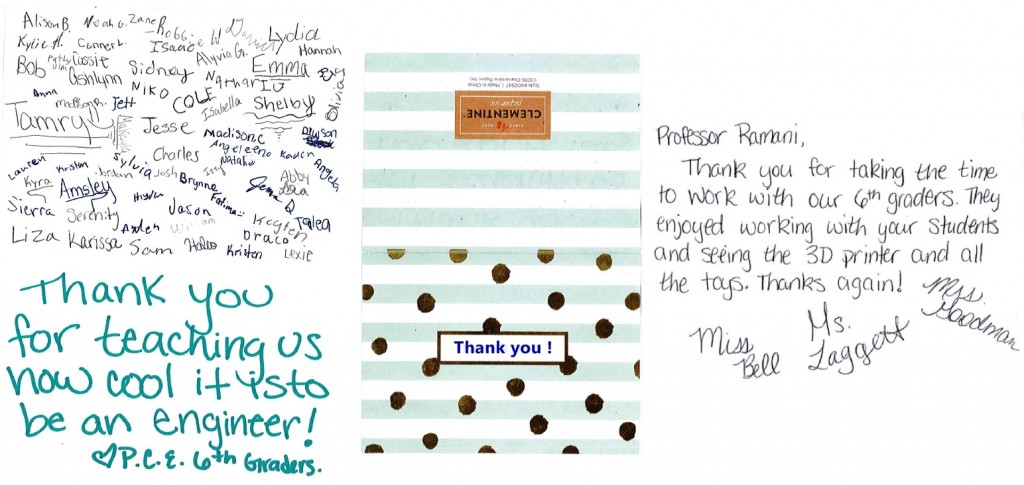 Alison B. Noah G. Zane Robb. W Daniel Lydia
Kylie A. Conner L. Isaac Alyvia G. Hannah
Bob Cassie Sidney Emma
Ashlynn Nathan
Anna Madison Jett NIKO COLE Isabella Shelby Olivia
Tamryn Jesse Madison C Dawson
Charles Angeleena Kaden
Lauren Kristan Sylvia Natalie Izzy Angela
Kyra Jordan Josh Brynne Abby
Amsley Jenna Q
Sierra Serenity Jason Fatima Keegten Talea
Ayden William Draco
Liza Karissa Sam Kristen Lexie
Thank you
for teaching us
how cool it is to
be an engineer!
♡ P.C.E. 6th Graders.
Style #400947 | Made in China
©2016 Clementine Paper, Inc.
CLEMENTINE®
paper inc
Thank you !
Professor Ramani,
Thank you for taking the time
to work with our 6th graders. They
enjoyed working with your students
and seeing the 3D printer and all
the toys. Thanks again!
Mrs. Goodman
Ms. Laggett
Miss Bell